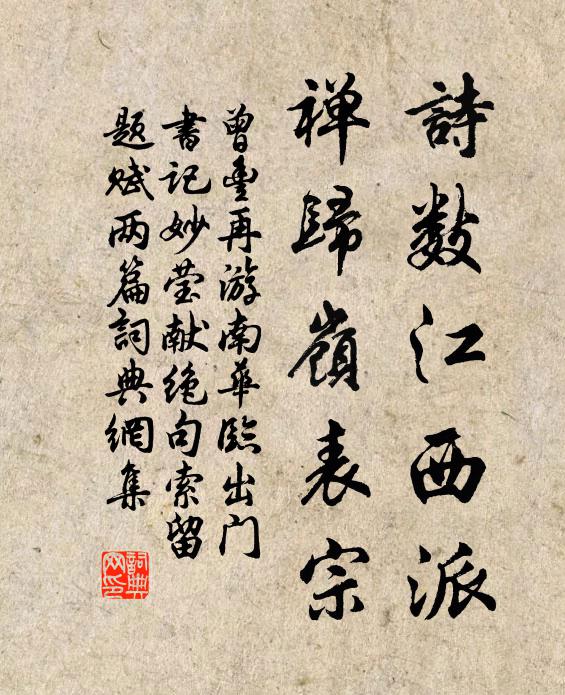 詩数江西派
禅歸嶺表宗
曾豊再游南華臨出门
書记妙莹献绝句索留
题赋两篇詞典網集
詞典网印